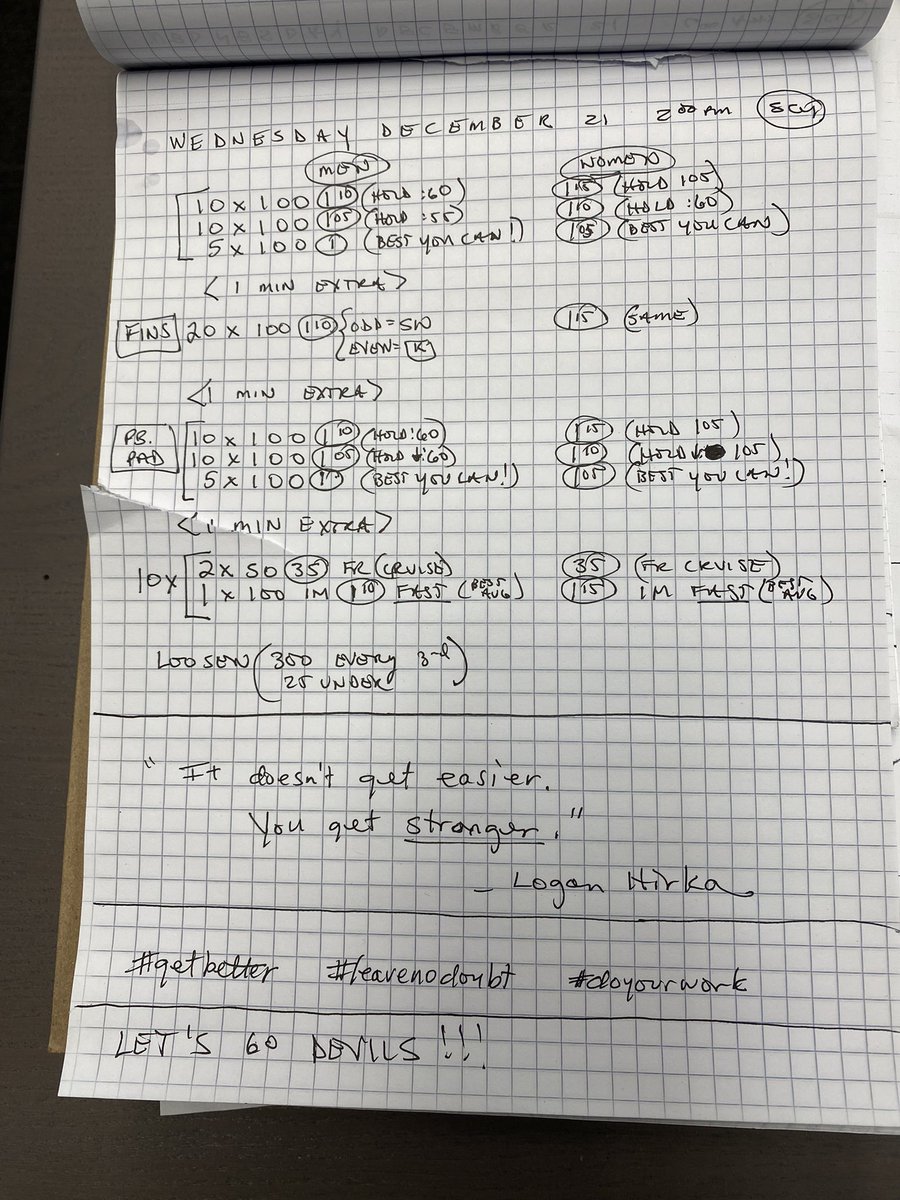 WEDNESDAY DECEMBER 21 2:00 PM SCY
MEN WOMEN
10 x 100 1:10 (HOLD :60) 1:15 (HOLD 105)
10 x 100 1:05 (HOLD :55) 1:10 (HOLD :60)
5 x 100 1 (BEST YOU CAN!) 1:05 (BEST YOU CAN)
<1 MIN EXTRA>
FINS 20 x 100 1:10 {ODD = SW 1:15 (SAME)
{EVEN = K
<1 MIN EXTRA>
PB. 10 x 100 1:10 (HOLD :60) 1:15 (HOLD 105)
PAD 10 x 100 1:05 (HOLD :60) 1:10 (HOLD 105)
5 x 100 (BEST YOU CAN!) 1:05 (BEST YOU CAN!)
<1 MIN EXTRA>
10x 2 x 50 35 FR (CRUISE) 35 (FR CRUISE)
1 x 100 IM 1:10 FAST (BEST AVG) 1:15 IM FAST (BEST AVG)
LOOSEN (300 EVERY 3rd
25 UNDER)
"It doesn't get easier.
You get stronger."
- Logan Hirka
#getbetter #leavenodoubt #doyourwork
LET'S GO DEVILS!!!